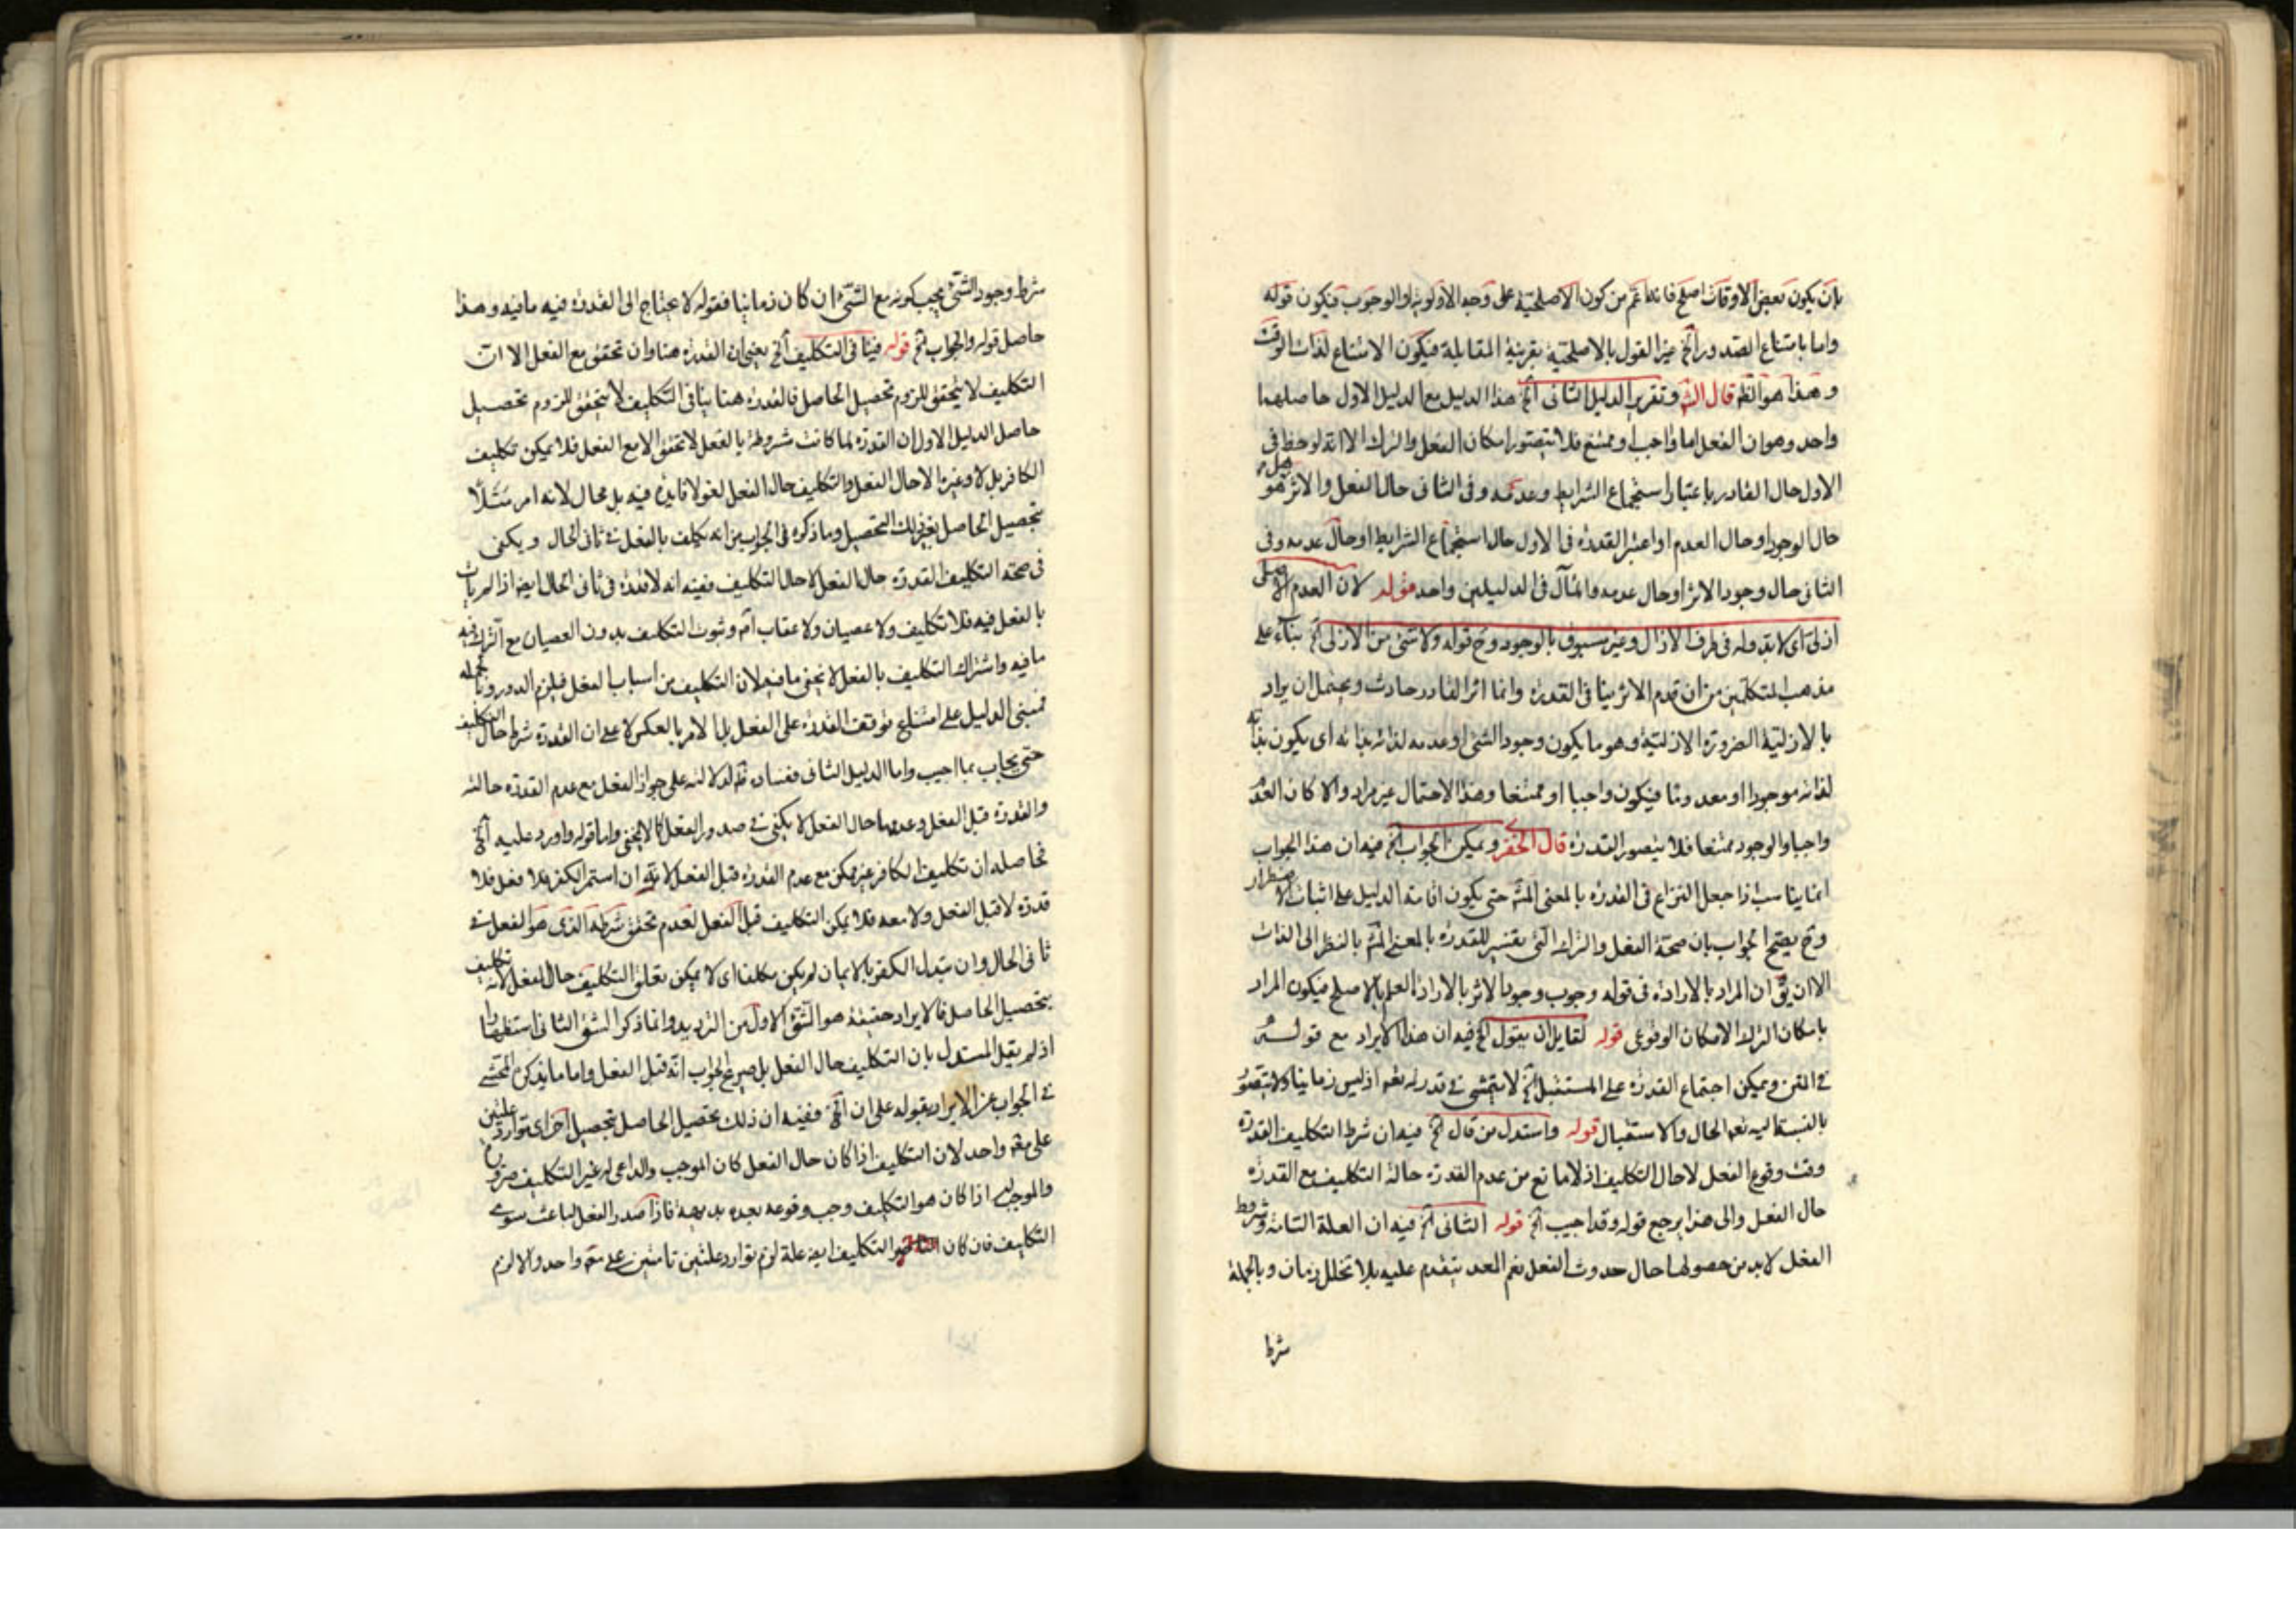 بان يكون بعض الاوقات اصلح فانه اعم من كون الاصلحية على وجه الاولوية او الوجوب فيكون قوله
واما بامتناع الصدور الخ غير القول بالاصلحية بقرينة المقابلة فيكون الامتناع لذات الوقت
و هذا هو الظ قال الش وتقرير الدليل الثانى الخ هذا الدليل مع الدليل الاول حاصلهما
واحد وهو ان الفعل اما واجب او ممتنع فلا يتصور امكان الفعل والترك الا انه لوحظ فى
الاول حال القادر باعتبار استجماع الشرايط وعدمه وفى الثانى حال الفعل والاثر هل هو
حال الوجود او حال العدم او اعتبر القدرة فى الاول حال استجماع الشرايط او حال عدمه وفى
الثانى حال وجود الاثر او حال عدمه والمآل فى الدليلين واحد قوله لان العدم الاصلى
ازلى اى لا بدو له فى طرف الازل وغير مسبوق بالوجود وح قوله ولا شئ من الازلى الخ بناء على
مذهب المتكلمين من ان قدم الاثر ينافى القدرة وانما اثر القادر حادث ويحتمل ان يراد
بالازلية الضرورة الازلية وهو ما يكون وجود الشئ او عدمه لذاته بذاته اى يكون بذاته
لذاته موجودا او معدوما فيكون واجبا او ممتنعا وهذا الاحتمال غير مراد والا كان العدم
واجبا والوجود ممتنعا فلا يتصور القدرة قال الخفرى ويمكن الجواب الخ فيه ان هذا الجواب
انما يناسب اذا جعل النزاع فى القدرة بالمعنى المش حتى يكون اقامة الدليل على اثبات الاضطرار
وح يصح الجواب بان صحة الفعل والترك التى يفسر القدرة بالمعنى المش بالنظر الى الذات
الا ان يق ان المراد بالارادة فى قوله وجوب وجود الاثر بالارادة العلم بالاصلح فيكون المراد
بامكان الترك الامكان الوقوعى قوله لقايل ان يقول الخ فيه ان هذا الايراد مع قوله
فى المتن ويمكن اجتماع القدرة على المستقبل الخ لا يتمشى فى قدرته تعم اذ ليس زمانيا ولا يتصور
بالنسبة اليه تعم الحال والاستقبال قوله واستدل من قال الخ فيه ان شرط التكليف القدرة
وقت وقوع الفعل لا حال التكليف اذ لا مانع من عدم القدرة حالة التكليف مع القدرة
حال الفعل والى هذا يرجع قوله وقد اجيب الخ قوله الثانى الخ فيه ان العلة التامة وشروط
الفعل لا بد من حصولها حال حدوث الفعل نعم المعد يتقدم عليه بلا تخلل زمان وبالجملة
شرط
شرط وجود الشئ يجب كونه مع الشئ ان كان زمانيا فقوله لا يحتاج الى القدرة فيه ما فيه وهذا
حاصل قوله والجواب الخ قوله فينافى التكليف الخ يعنى ان القدرة هنا وان تحقق مع الفعل الا ان
التكليف لا يتحقق للزوم تحصيل الحاصل فالقدرة هنا ينافى التكليف لا يتحقق للزوم تحصيل
حاصل الدليل الاول ان القدرة لما كانت مشروطة بالفعل لا تحقق الا مع الفعل فلا يمكن تكليف
الكافر بل لا وغيره الا حال الفعل والتكليف حال الفعل لغو لا فايدة فيه بل محال لانه امر مثلا
بتحصيل الحاصل بغير ذلك التحصيل وما ذكره فى الجواب من انه تكليف بالفعل فى ثانى الحال ويكفى
فى صحة التكليف القدرة حال الفعل لا حال التكليف ففيه انه لا قدرة فى ثانى الحال ايض اذا لم يأت
بالفعل فيه فلا تكليف ولا عصيان ولا عقاب ام وثبوت التكليف بدون العصيان مع الترك فيه
ما فيه واشتراك التكليف بالفعل لا يخفى ما فيه لان التكليف من اسباب الفعل فيلزم الدور وبالجملة
فمبنى الدليل على امتناع توقف القدرة على الفعل بل الامر بالعكس لا على ان القدرة شرط حال التكليف
حتى يجاب بما اجيب واما الدليل الثانى ففساده ظ لدلالته على جواز الفعل مع عدم القدرة حالته
والقدرة قبل الفعل وعدمها حال الفعل لا يكفى فى صدور الفعل كما لا يخفى واما قوله واورد عليه الخ
فحاصله ان تكليف الكافر غير ممكن مع عدم القدرة قبل الفعل لانه ان استمر الكفر فلا فعل فلا
قدرة لا قبل الفعل ولا معه فلا يمكن التكليف قبل الفعل لعدم تحقق شرطه الذى هو الفعل فى
ثانى الحال وان تبدل الكفر بالايمان لم يكن مكلفا اى لا يمكن تعلق التكليف حال الفعل لانه تكليف
بتحصيل الحاصل فالايراد حقيقة هو الشق الاول من الترديد وانما ذكر الشق الثانى استظهارا
اذ لم يقل المستدل بان التكليف حال الفعل بل صرح بجواب انه قبل الفعل واما ما يذكره المحشى
فى الجواب عن الايراد بقوله على ان الخ ففيه ان ذلك تحصيل الحاصل بتحصيل اخر اى توارد علتين
على مع واحد لان التكليف اذا كان حال الفعل كان الموجب والداعى له غير التكليف ضرورة
والموجب اذا كان هو التكليف وجب وقوعه بعده بديهة فاذا صدر الفعل لباعث سوى
التكليف فان كان التكليف ايض علة لزم توارد علتين تامتين على مع واحد والا لزم